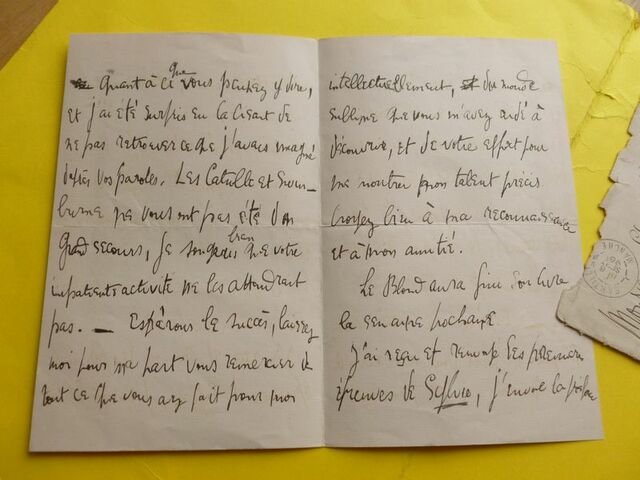 Quant à ce que vous pensez y dire,
et j'ai été surpris en la lisant de
ne pas retrouver ce que j'avais imaginé
d'après vos paroles. Les Catulle et Swin-
burne ne vous ont pas été d'un
grand secours, je songeais bien que votre
impatiente activité ne les attendrait
pas. — Espérons le succès, laissez
moi pour ma part vous remercier de
tout ce que vous avez fait pour moi
intellectuellement, du monde
sublime que vous m'avez aidé à
découvrir, et de votre effort pour
me montrer mon talent précis
croyez bien à ma reconnaissance
et à mon amitié.
Le Blond aura fini son livre
la semaine prochaine
J'ai reçu et renvoyé les premières
épreuves de Sylvie, j'envoie la préface